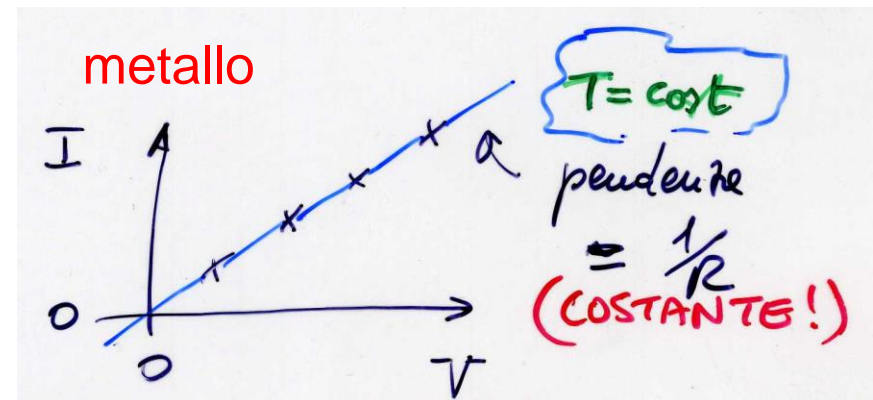 metallo
T = cost
I
a
pendenza
= 1/R
(COSTANTE!)
O
O
V